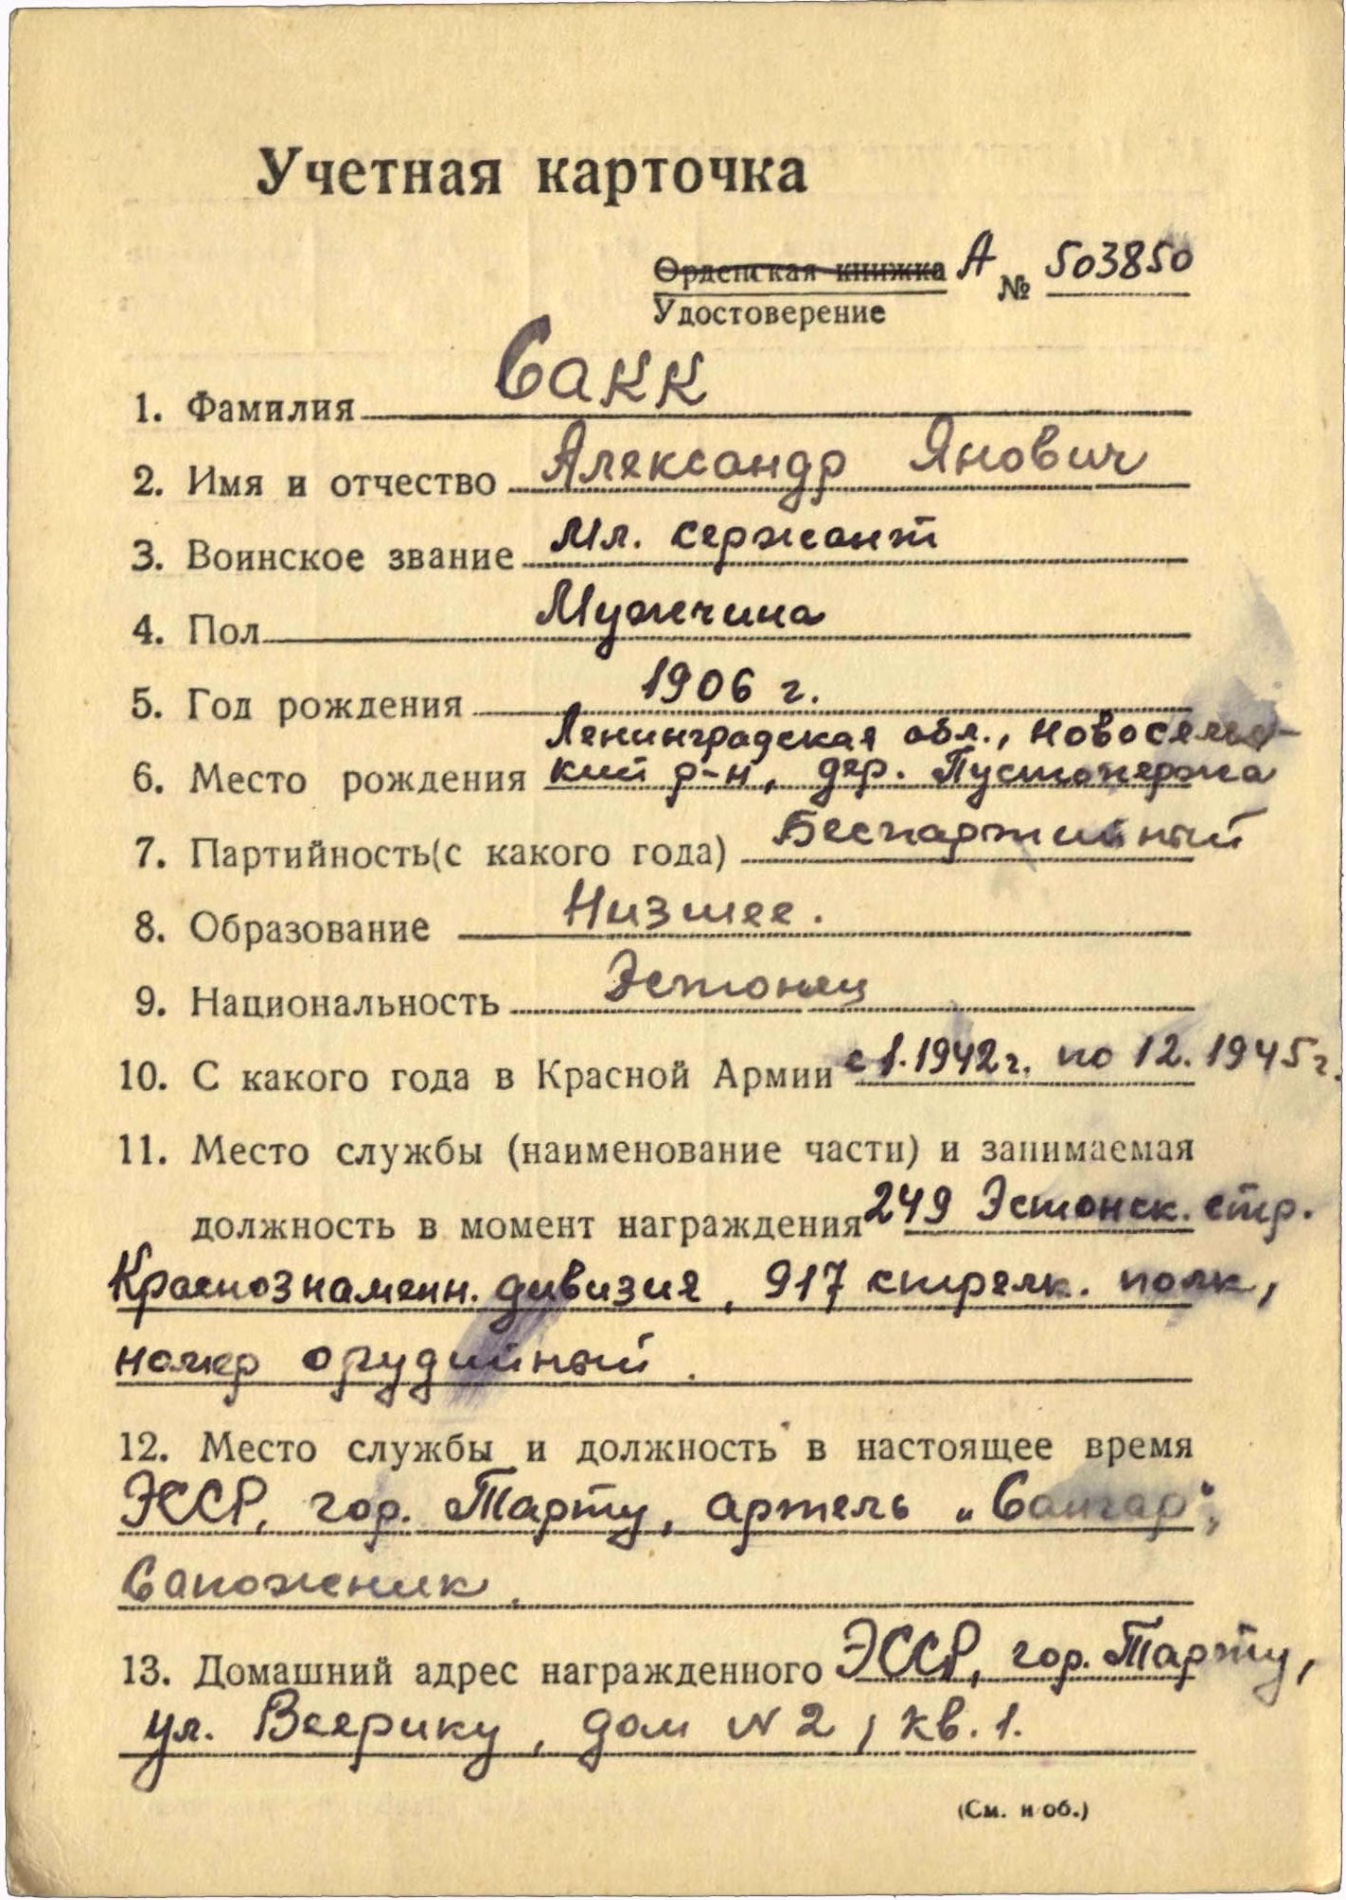 Учетная карточка
Орденская книжка А № 503850
Удостоверение
1. Фамилия Сакк
2. Имя и отчество Александр Янович
3. Воинское звание Мл. сержант
4. Пол Мужчина
5. Год рождения 1906 г.
Ленинградская обл., Новосельс-
6. Место рождения кий р-н, дер.
7. Партийность(с какого года) Беспартийный
8. Образование Низшее.
9. Национальность Эстонец
10. С какого года в Красной Армии с 1.1942г. по 12.1945г.
11. Место службы (наименование части) и занимаемая
должность в момент награждения 249 Эстонск. стр.
Краснознаменн. дивизия, 917 стрелк. полк,
номер орудийный.
12. Место службы и должность в настоящее время
ЭССР, гор. Тарту, артель „Сангар",
Сапожник.
13. Домашний адрес награжденного ЭССР, гор. Тарту,
ул. Веерику, дом N 2, кв. 1.
(См. н об.)